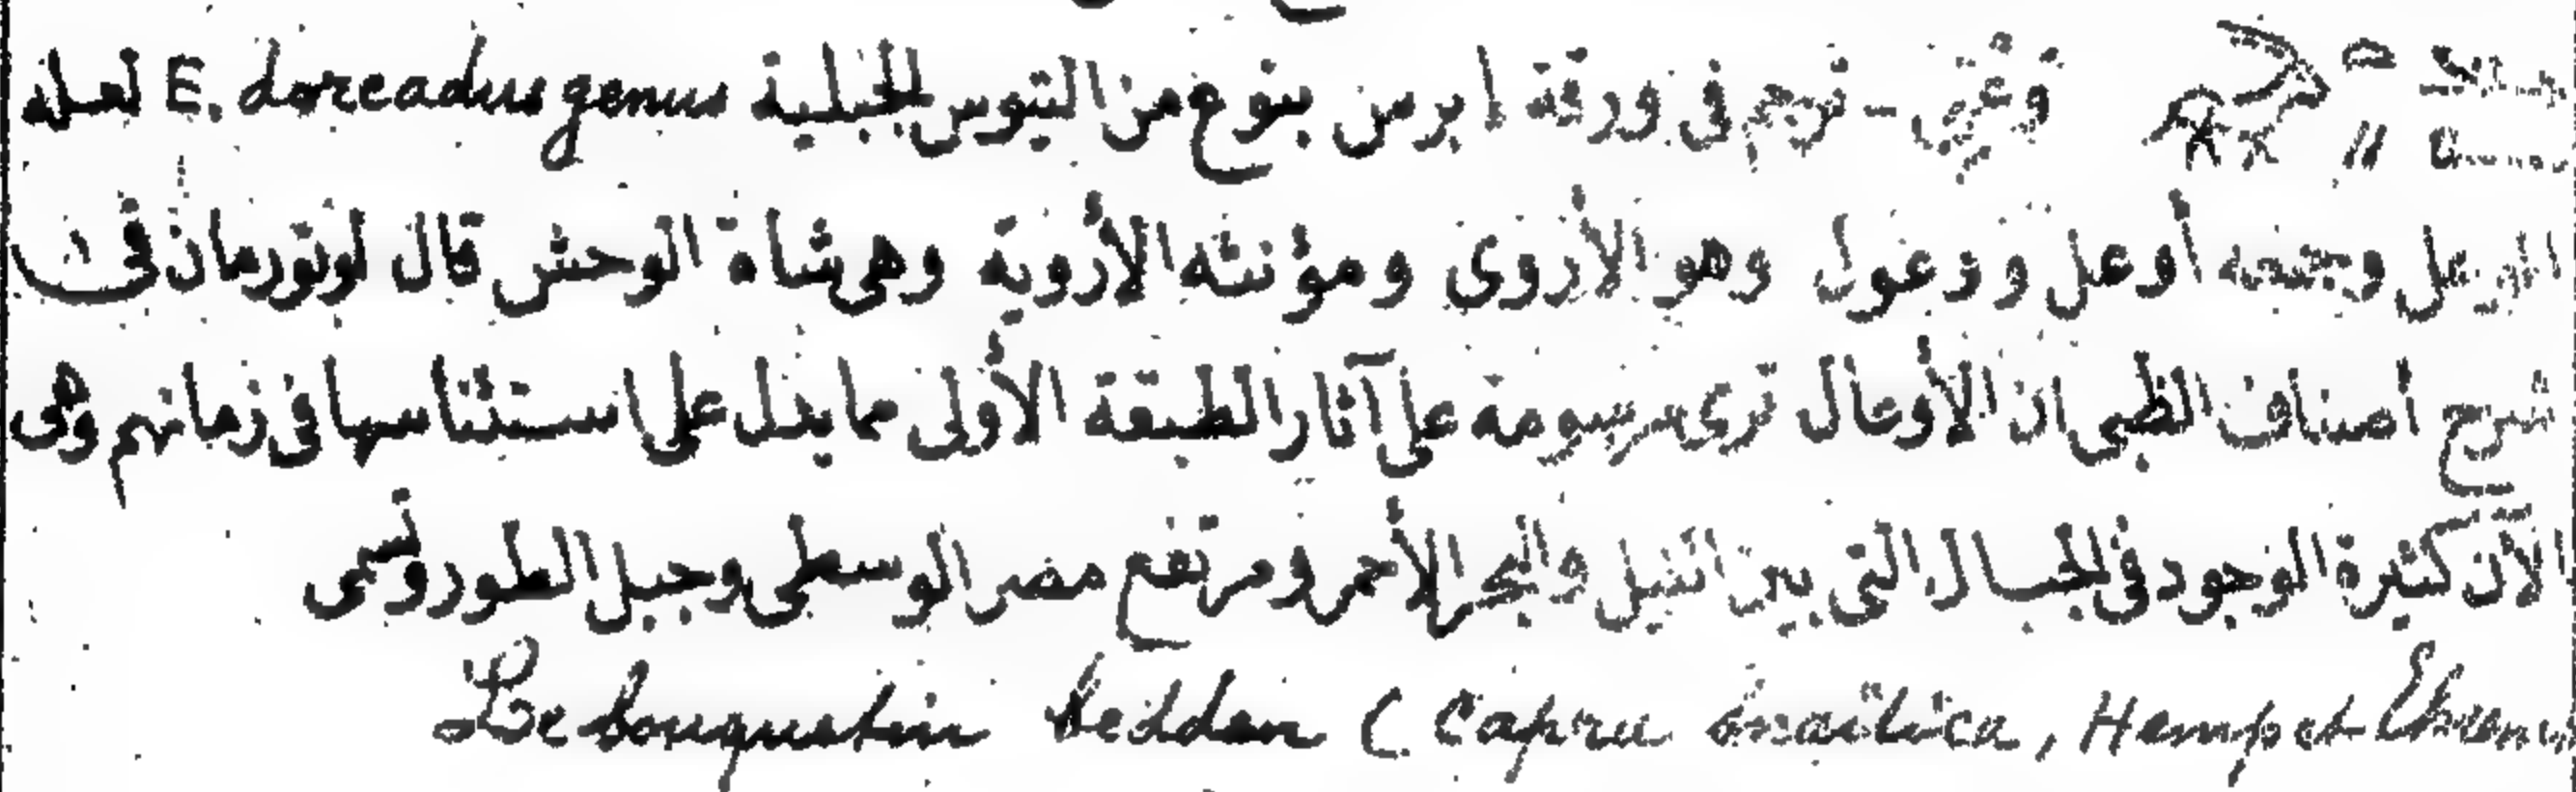 وعنى - ترجم فى ورقة إبرس بنوع من التيوس الجبلية E. doreadus genus لعله
الوعل وجمعه أوعل ووعول وهو الأروى ومؤنثه الأروية وهى شاة الوحش قال لونورمان فى
شرح أصناف الظبى ان الأوعال ترى مرسومة على آثار الطبقة الأولى مما يدل على استئناسها فى زمانهم وهى
الآن كثيرة الوجود فى الجبال التى بين النيل والبحر الأحمر ومرتفع مصر الوسطى وجبل الطور وتسمى
Le bouquetin beddan ( Capra sinaïtica, Hemp et Ehren